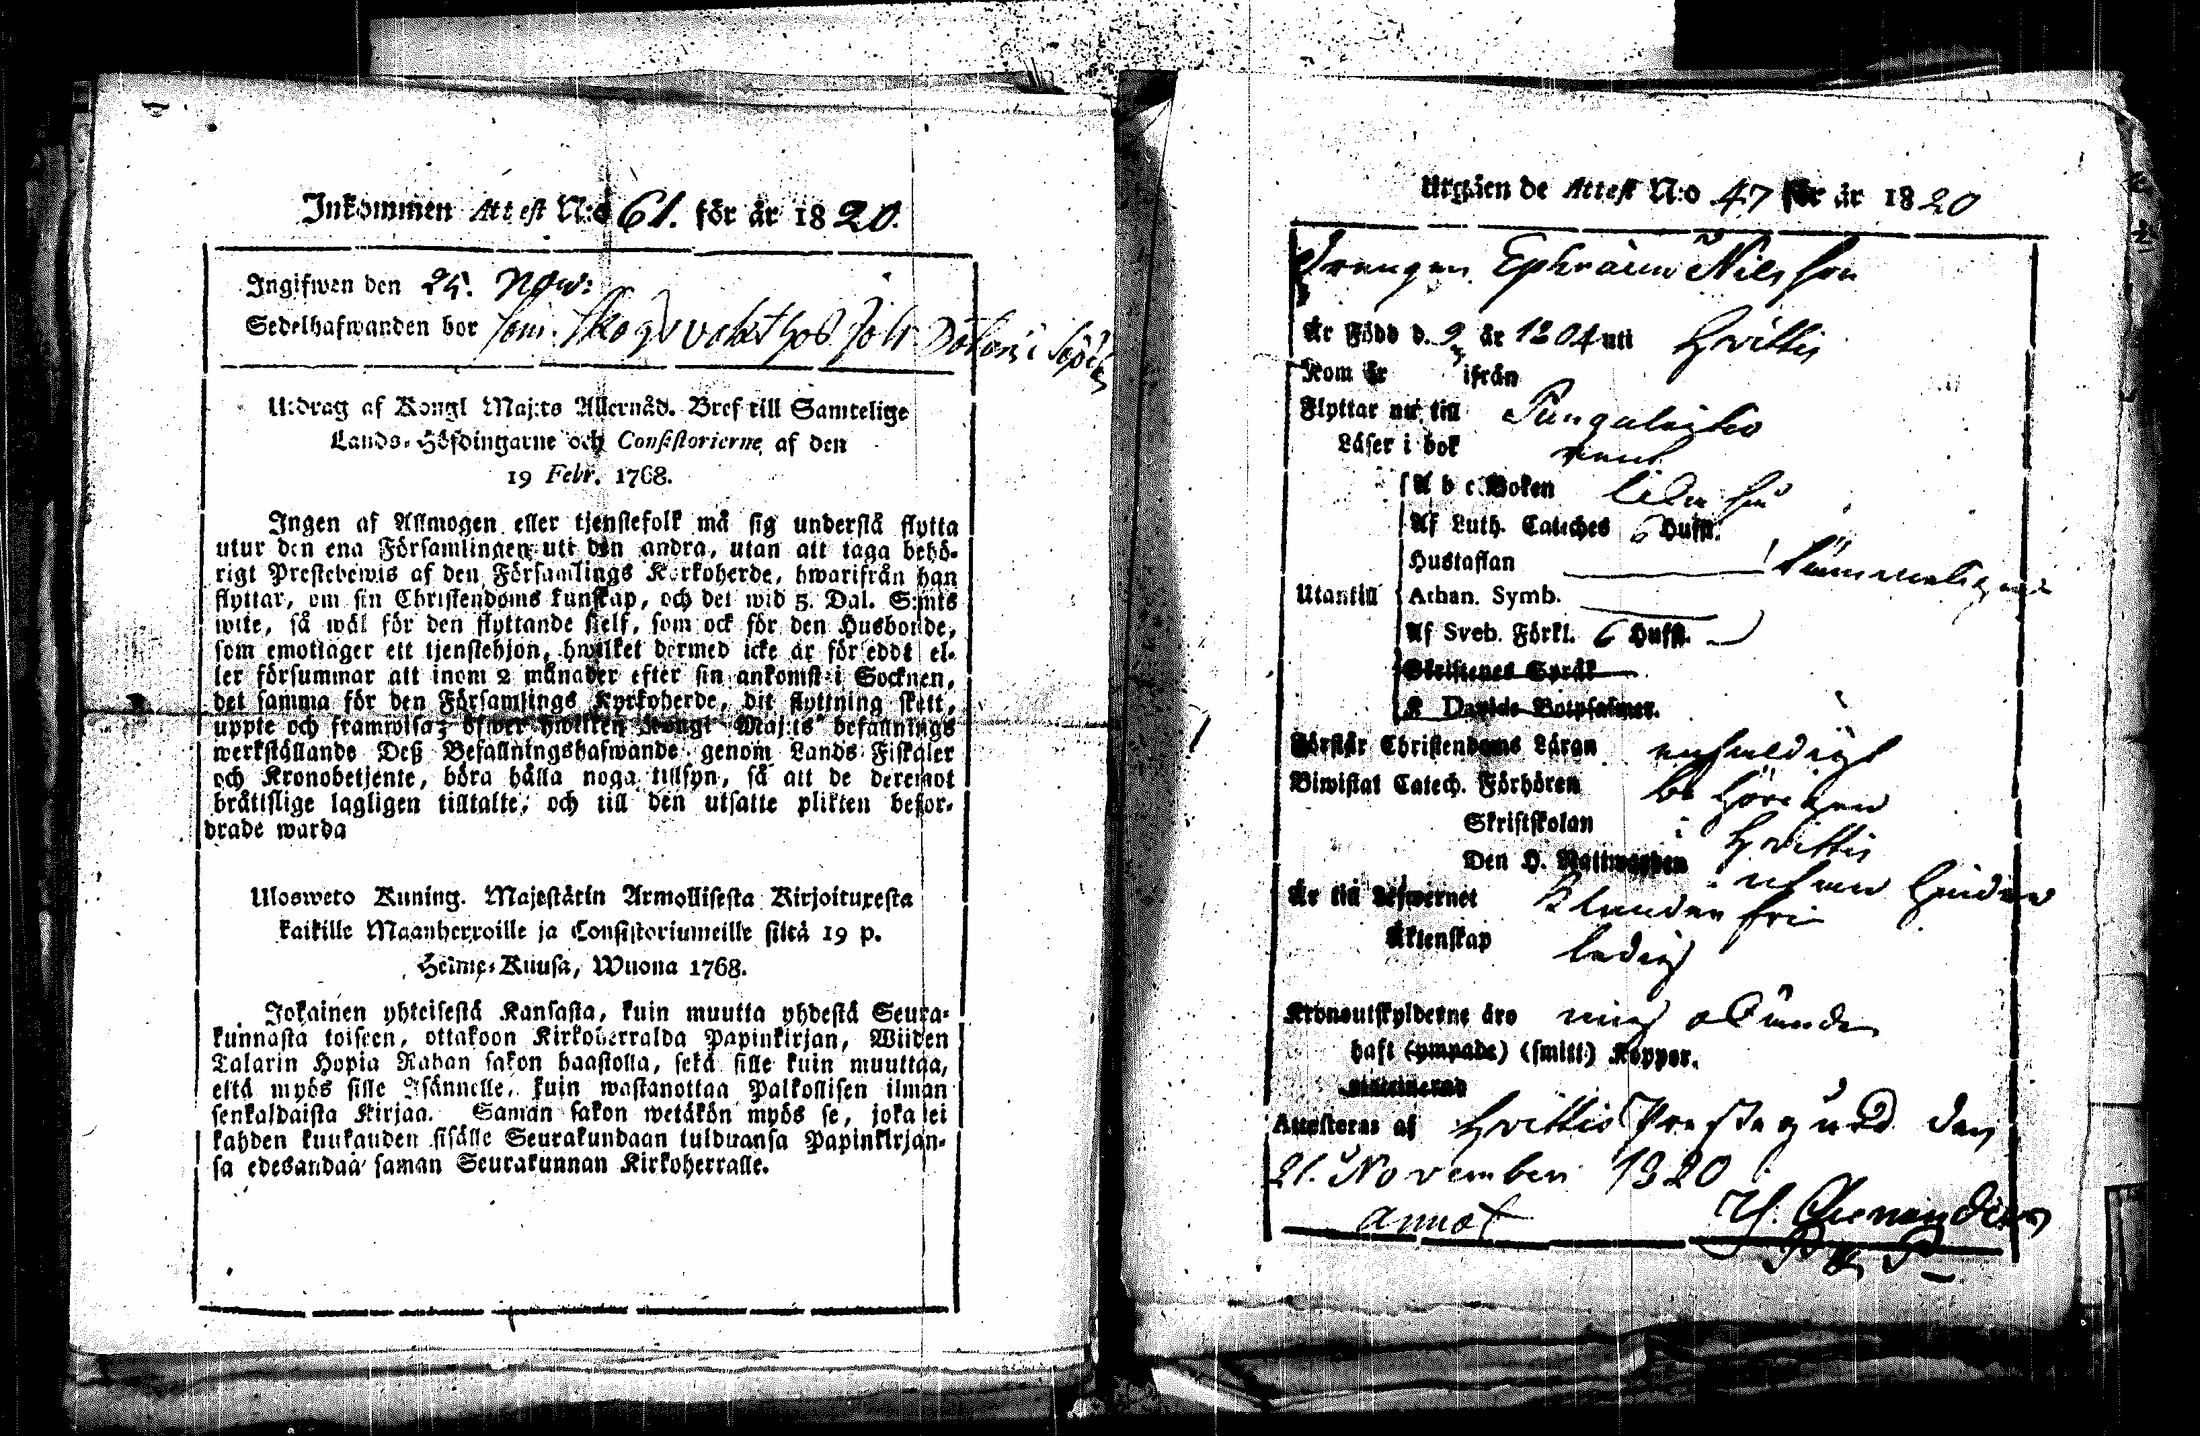 Inkommen Attest N:o 61. för år 1820.
Ingifwen den 25. Now:
Sedelhafwanden bor som
Utdrag af Kongl Maj:ts Allernåd. Bref till Samtelige
Lands-Höfdingarne och Consistorierne, af den
19 Febr. 1768.
Ingen af Allmogen eller tjenstefolk må sig understå flytta
utur den ena Församlingen uti den andra, utan att taga behö-
rigt Prestebewis af den Församlings Kyrkoherde, hwarifrån han
flyttar, om sin Christendoms kunskap, och det wid 5. Dal. S:mts
wite, så wäl för den flyttande sielf, som ock för den Husbonde,
som emottager ett tjenstehjon, hwilket dermed icke är föreddt el-
ler försummar att inom 2 månader efter sin ankomst i Socknen,
det samma för den Församlings Kyrkoherde, dit flyttning skett,
uppte och framwisa; öfwer hwilken Kongl Maj:ts befallnings
werkställande Deß Befallningshafwande genom Lands Fiskaler
och Kronobetjente, böra hålla noga tillsyn, så att de deremot
bråttslige lagligen tilltalte, och till den utsatte plikten befor-
drade warda
Ulosweto Kuning. Majestätin Armollisesta Kirjoituxesta
kaikille Maanherroille ja Consistoriumeille siitä 19 p.
Helme-Kuusa, Wuona 1768.
Jokainen yhteisestä Kansasta, kuin muutta yhdestä Seura-
kunnasta toiseen, ottakoon Kirkoherralda Papinkirjan, Wiiden
Talarin Hopia Rahan sakon haastolla, sekä sille kuin muuttaa,
että myös sille Isännelle, kuin wastanottaa Palkollisen ilman
senkaldaista Kirjaa. Saman sakon wetäkön myös se, joka ei
kahden kuukauden sisälle Seurakundaan tulduansa Papinkirjan-
sa edesandaa saman Seurakunnan Kirkoherralle.
Utgåen de Attest N:o 47 för år 1820
Drengen Ephraim Nilsson
Är Född d. 9 år 1804 uti Hvittis
Kom år ifrån
Flyttar nu till Pungalaitio
Läser i bok rent
A b c Boken
Af Luth. Cateches 6 Hufst.
Hustaflan
Utantill Athan. Symb.
Af Sveb. Förkl. 6 Hufst.
Skriftenes Språk
K Davids Botpsalmer.
Förstår Christendoms Läran enfaldigt
Biwistat Catech. Förhören behörigen
Skriftskolan i Hvittis
Den H. Nattwarden
Är till Lefwernet klanderfri utan hinder
Äktenskap ledig
Kronoutskylderne äro mig okunde
haft (ympade) (smitt) Koppor.
Attesteras af Hvittis Prestegård den
21. November 1820